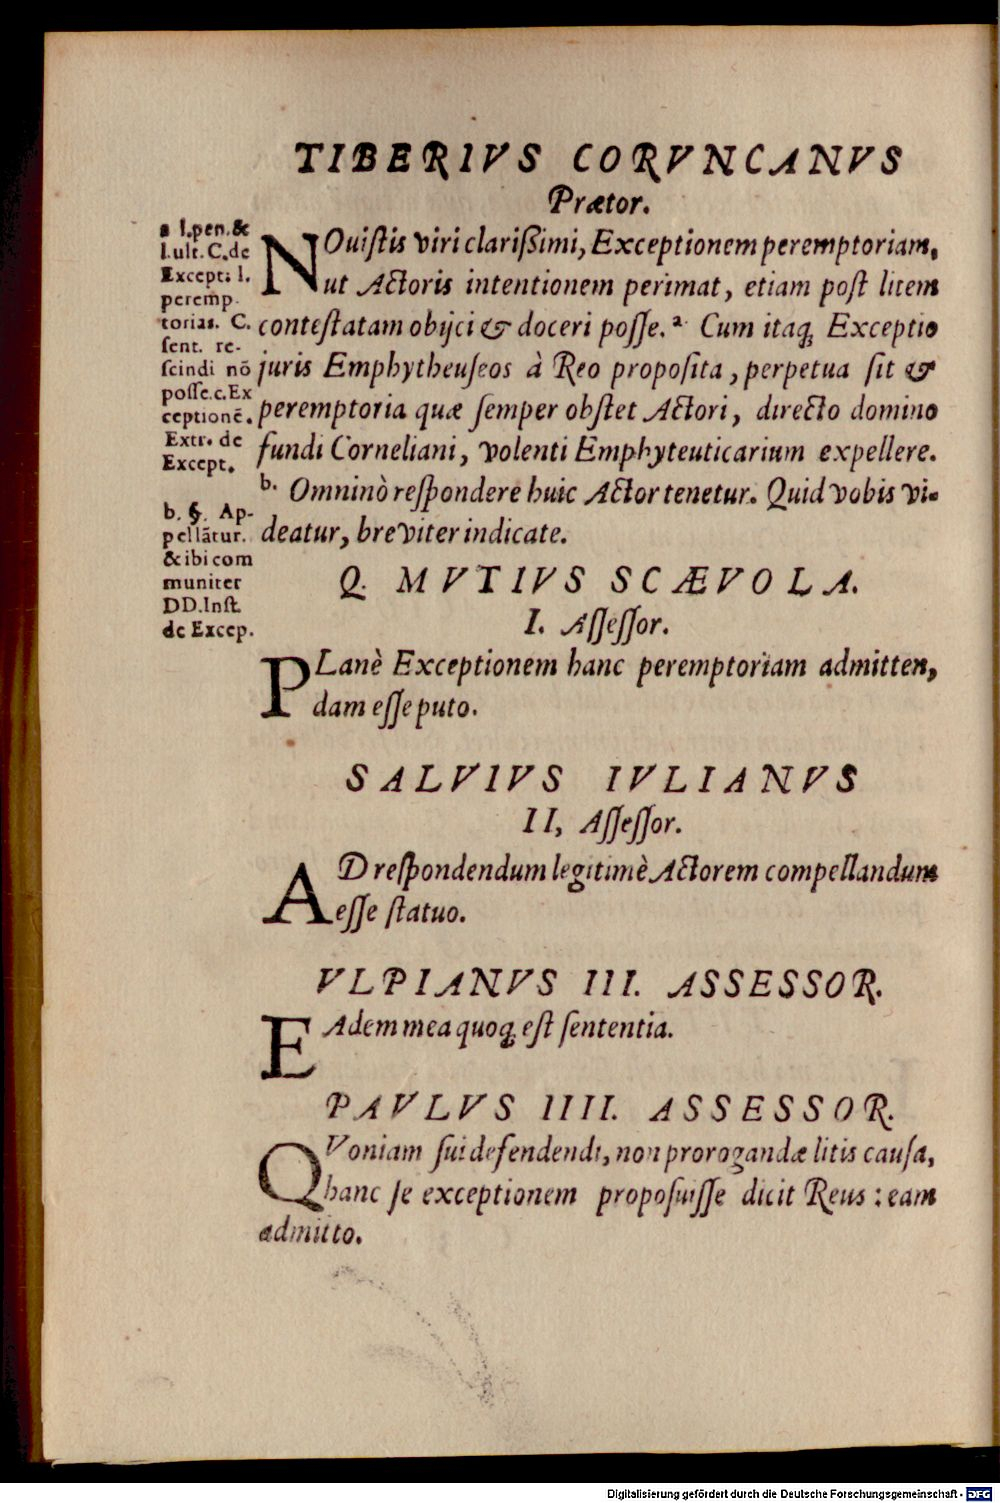 TIBERIVS CORVNCANVS
Prætor.
NOuiſtis viri clariſſimi, Exceptionem peremptoriam,
ut Actoris intentionem perimat, etiam poſt litem
conteſtatam obijci & doceri poſſe.ᵃ Cum itaq; Exceptio
juris Emphytheuſeos à Reo propoſita, perpetua ſit &
peremptoria quæ ſemper obſtet Actori, directo domino
fundi Corneliani, volenti Emphyteuticarium expellere.
b. Omninò reſpondere huic Actor tenetur. Quid vobis vi-
deatur, breviter indicate.
a l.pen.&
l.ult. C.de
Except: l.
peremp
torias. C.
ſent. re-
ſcindi nõ
poſſe.c.Ex
ceptionẽ.
Extr. de
Except.
b. §. Ap-
pellãtur.
& ibi com
muniter
DD.Inſt.
de Excep.
Q. MVTIVS SCÆVOLA.
I. Aſſeſſor.
PLanè Exceptionem hanc peremptoriam admitten,
dam eſſe puto.
SALVIVS IVLIANVS
II, Aſſeſſor.
AD reſpondendum legitimè Actorem compellandum
eſſe ſtatuo.
VLPIANVS III. ASSESSOR.
EAdem mea quoq; eſt ſententia.
PAVLVS IIII. ASSESSOR.
QVoniam ſui defendendi, non prorogandæ litis cauſa,
hanc ſe exceptionem propoſuiſſe dicit Reus : eam
admitto.
Digitalisierung gefördert durch die Deutsche Forschungsgemeinschaft - DFG